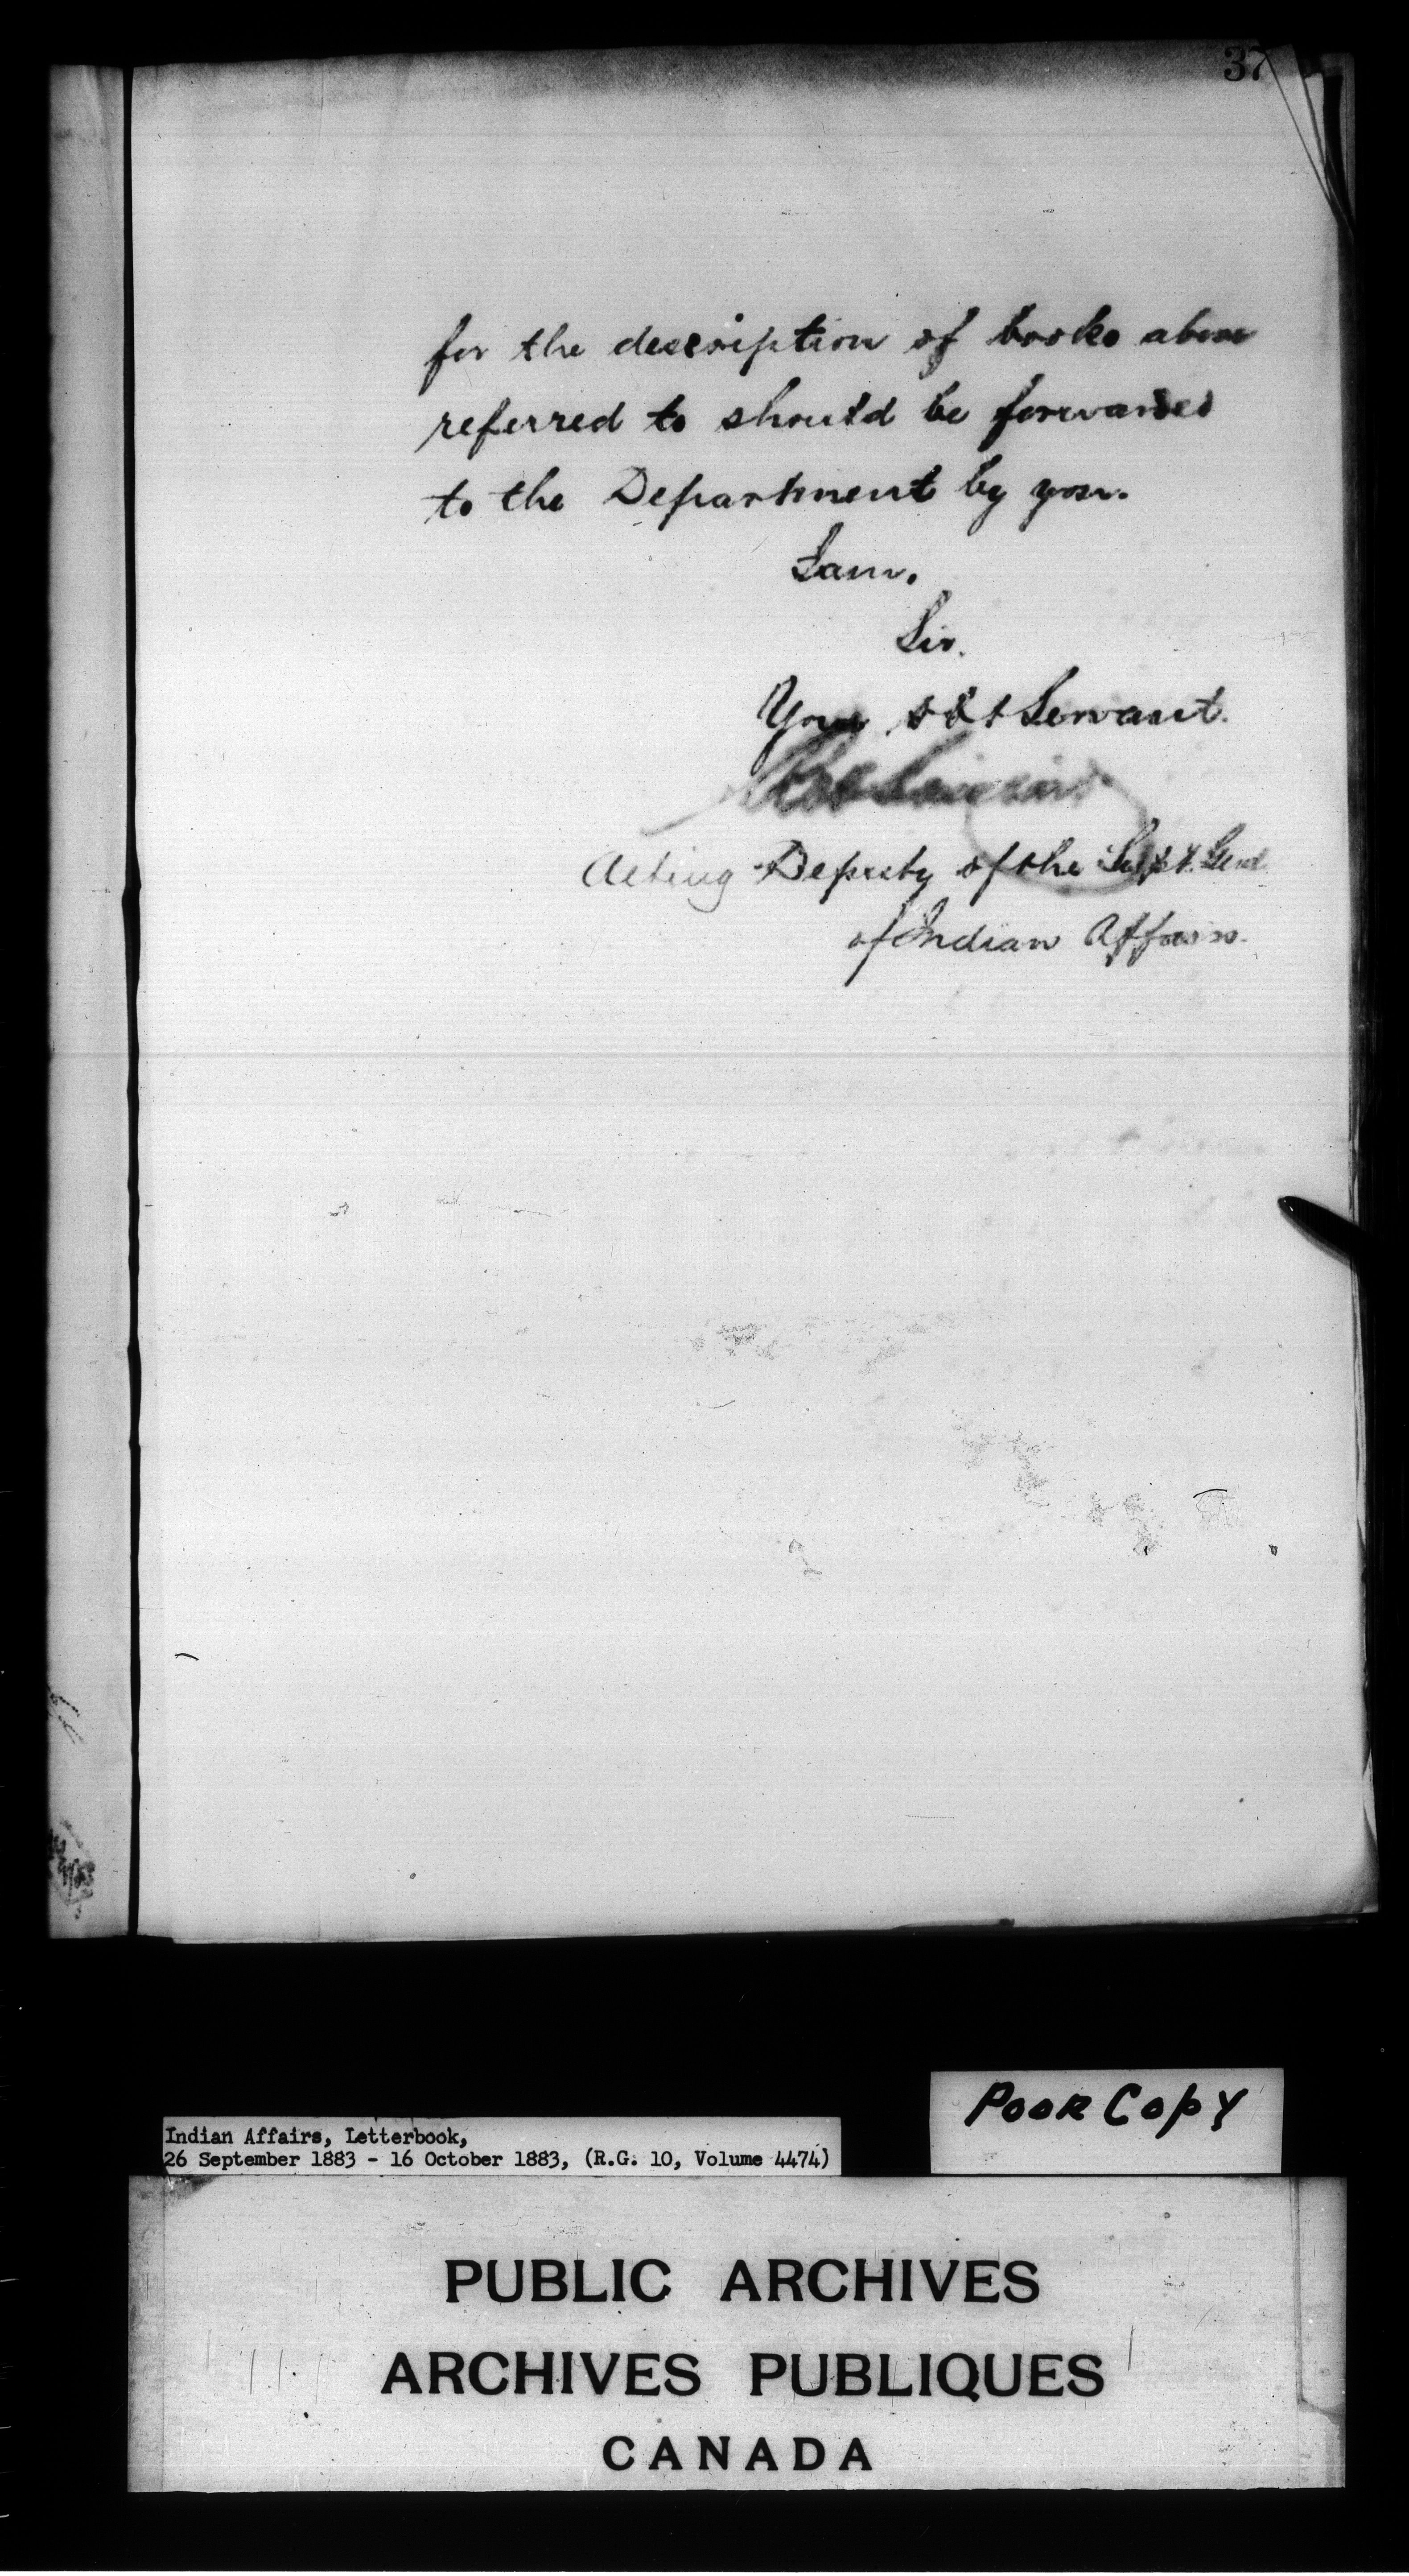 37
for the description of books above
referred to should be forwarded
to the Department by you.
I am.
Sir.
Your obt Servant.
Sinclair
Acting Deputy of the Supt. Genl
of Indian Affairs.
Poor Copy
Indian Affairs, Letterbook,
26 September 1883 - 16 October 1883, (R.G. 10, Volume 4474)
PUBLIC ARCHIVES
ARCHIVES PUBLIQUES
CANADA